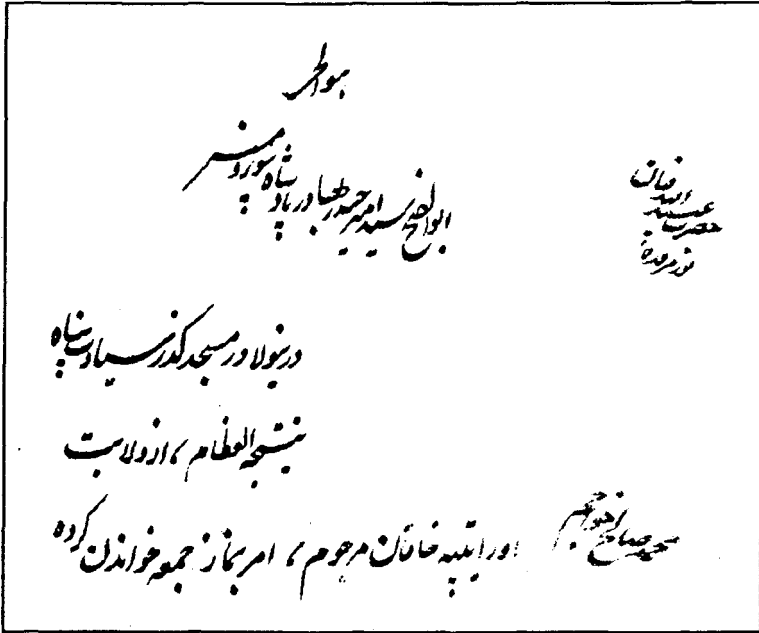 ابوالفتح سید امیر حیدر بهادر پادشاه سوزومیز
حضرت عبید الله خان
نور مرقده
درینولا در مسجد کذر سیادت پناه
نتیجه العظام ، از ولایت
محمد صالح خواجم
اوراتپه خاقان مرحوم ، امر بنماز جمعه خواندن کرده